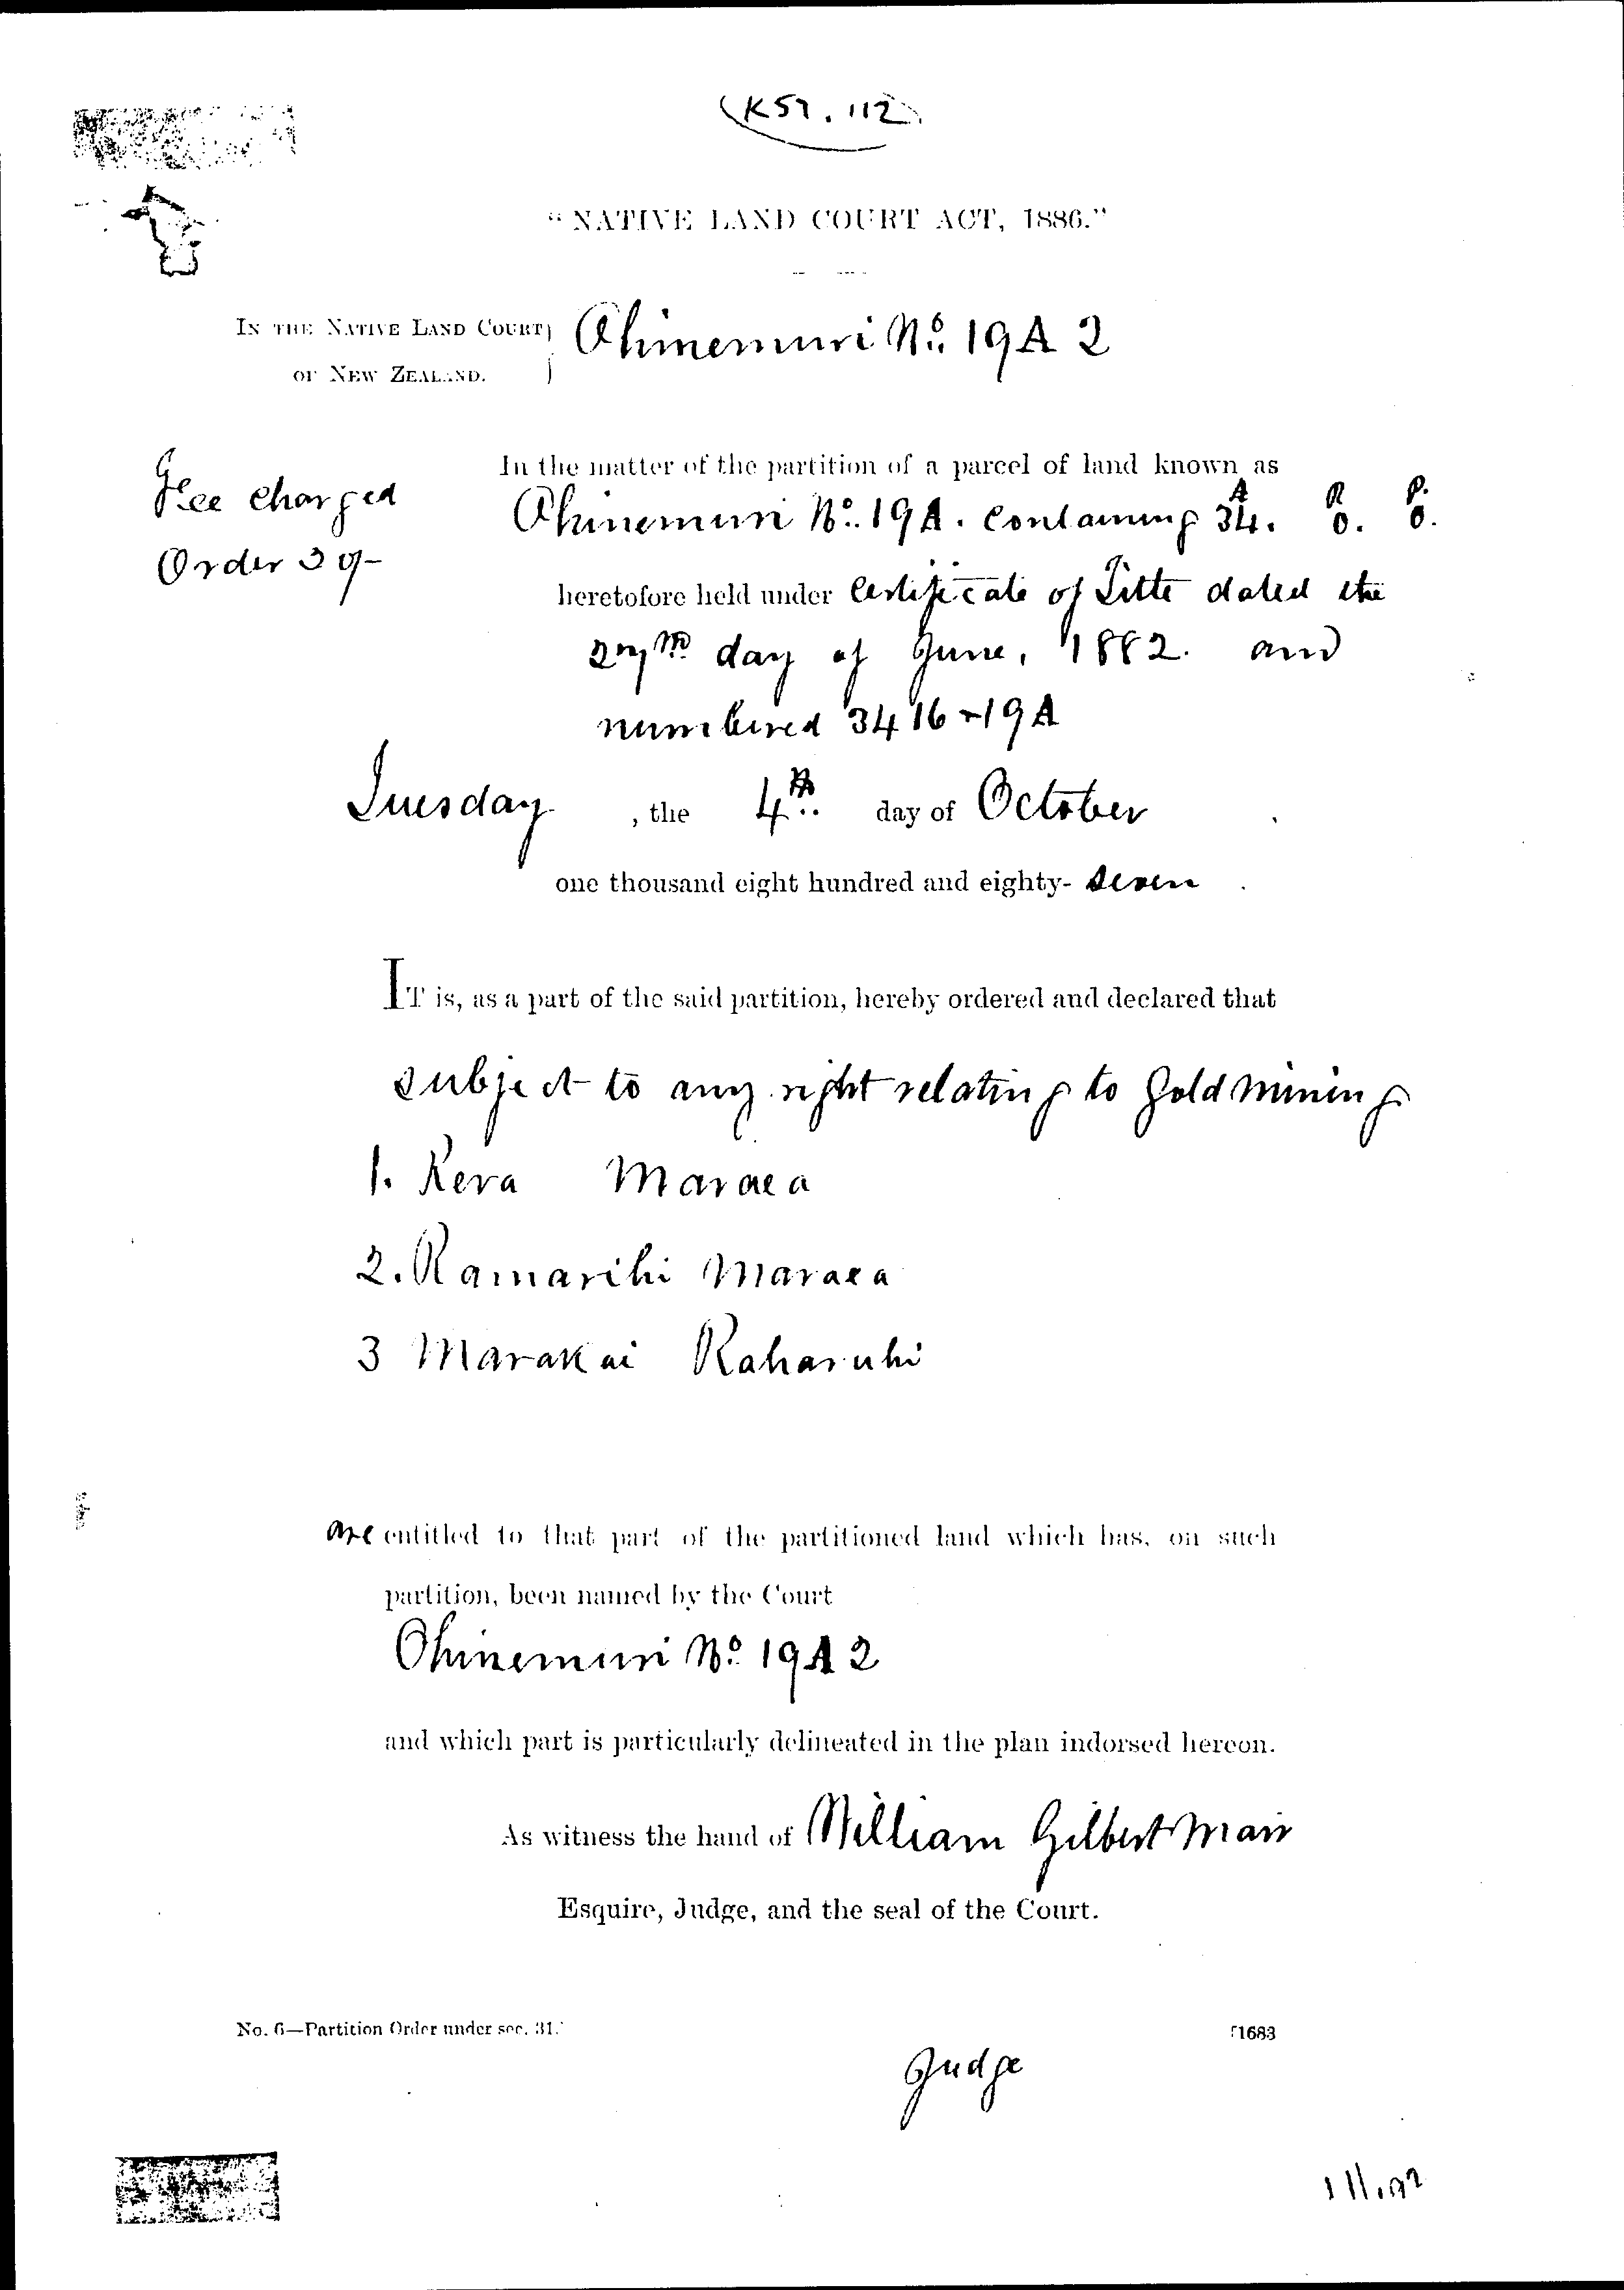 (K57.112)
"NATIVE LAND COURT ACT, 1886."
IN THE NATIVE LAND COURT
OF NEW ZEALAND.
Ohinemuri No. 19A 2
Fee charged
Order 20/-
In the matter of the partition of a parcel of land known as
Ohinemuri No. 19A. containing 34. 0. 0.
A R P.
heretofore held under Certificate of Title dated the
27th day of June, 1882. and
numbered 3416-19A
Tuesday , the 4th day of October
one thousand eight hundred and eighty- seven .
IT is, as a part of the said partition, hereby ordered and declared that
subject to any right relating to Gold mining
1. Kera Maraea
2. Ramarihi Maraea
3 Marakai Raharuhi
are entitled to that part of the partitioned land which has, on such
partition, been named by the Court
Ohinemuri No. 19A2
and which part is particularly delineated in the plan indorsed hereon.
As witness the hand of William Gilbert Mair
Esquire, Judge, and the seal of the Court.
No. 6—Partition Order under sec. 31.
1683
Judge